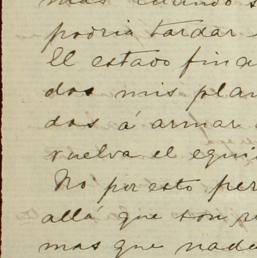 mas cuando s
podria tardar
El estado fina
dos mis plan
dos á armar
vuelva el equi
No por esto per
allá que son
mas que nada